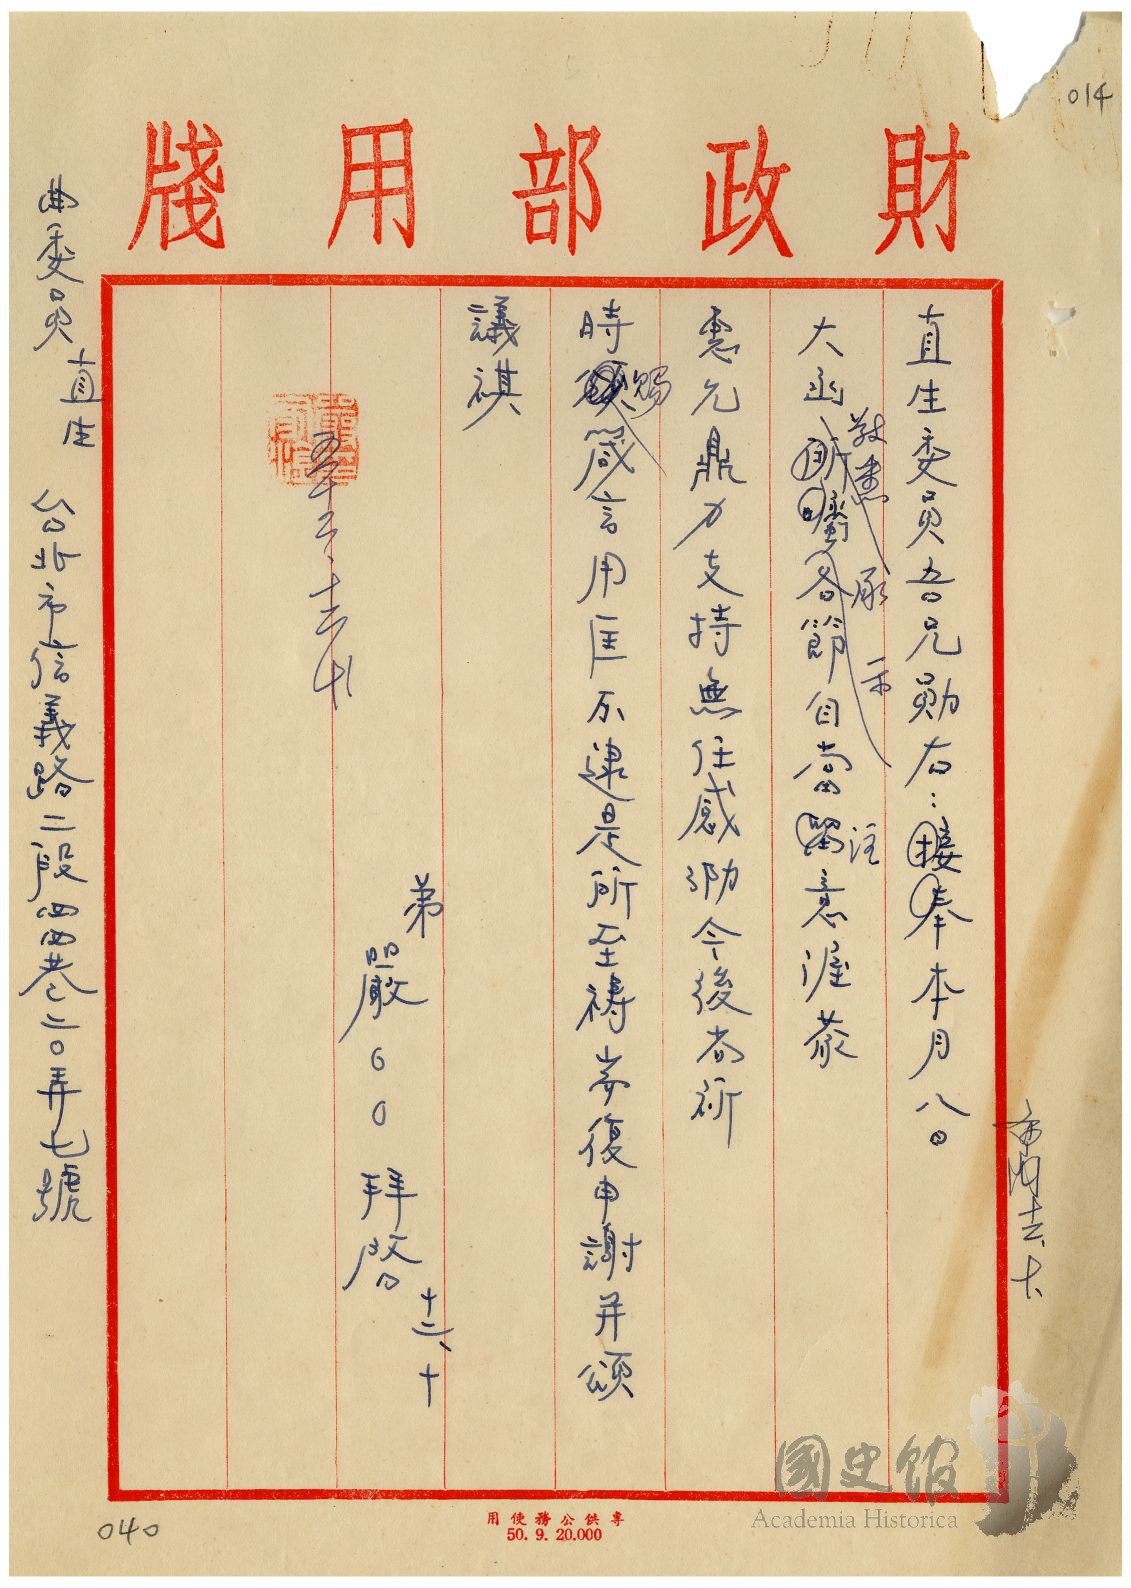 014
財政部用牋
直生委員吾兄勛右：接奉本月八日
大函敬悉承示
所囑各節自當留意渥蒙
注
惠允鼎力支持無任感泐今後尚祈
時賜箴言用匡不逮是所至禱耑復申謝并頌
議祺
弟
嚴○○拜啓
十二、十
曲委員
直生
台北市信義路二段四四巷二○弄七號
專供公務使用
50. 9. 20.000
040
國史館
Academia Historica